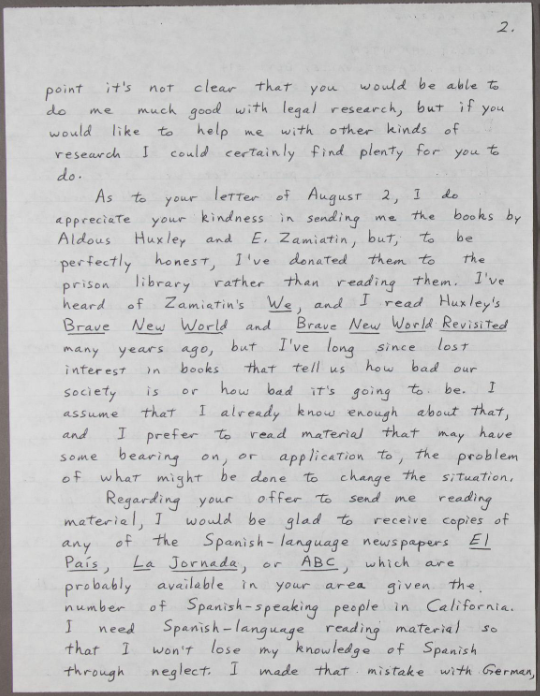 2.
point it's not clear that you would be able to
do me much good with legal research, but if you
would like to help me with other kinds of
research I could certainly find plenty for you to
do.
As to your letter of August 2, I do
appreciate your kindness in sending me the books by
Aldous Huxley and E. Zamiatin, but, to be
perfectly honest, I've donated them to the
prison library rather than reading them. I've
heard of Zamiatin's We, and I read Huxley's
Brave New World and Brave New World Revisited
many years ago, but I've long since lost
interest in books that tell us how bad our
society is or how bad it's going to be. I
assume that I already know enough about that,
and I prefer to read material that may have
some bearing on, or application to, the problem
of what might be done to change the situation.
Regarding your offer to send me reading
material, I would be glad to receive copies of
any of the Spanish-language newspapers El
País, La Jornada, or ABC, which are
probably available in your area given the
number of Spanish-speaking people in California.
I need Spanish-language reading material so
that I won't lose my knowledge of Spanish
through neglect. I made that mistake with German,